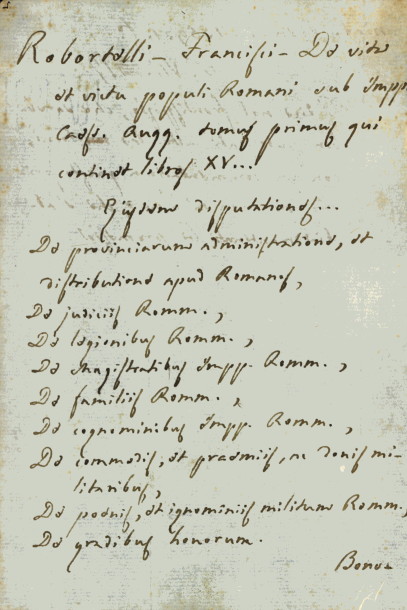 Robortelli – Francisci – De vita
et victu populi Romani sub Impp.
Caess. Augg. tomus primus qui
continet libros XV...
Ejusdem disputationes...
De provinciarum administratione, et
distributione apud Romanos,
De judiciis Romm.,
De legionibus Romm.,
De Magistratibus Impp. Romm.,
De familiis Romm.,
De cognominibus Impp. Romm.,
De commodis, et praemiis, ac donis mi-
litaribus,
De poenis, et ignominiis militum Romm.,
De gradibus honorum.